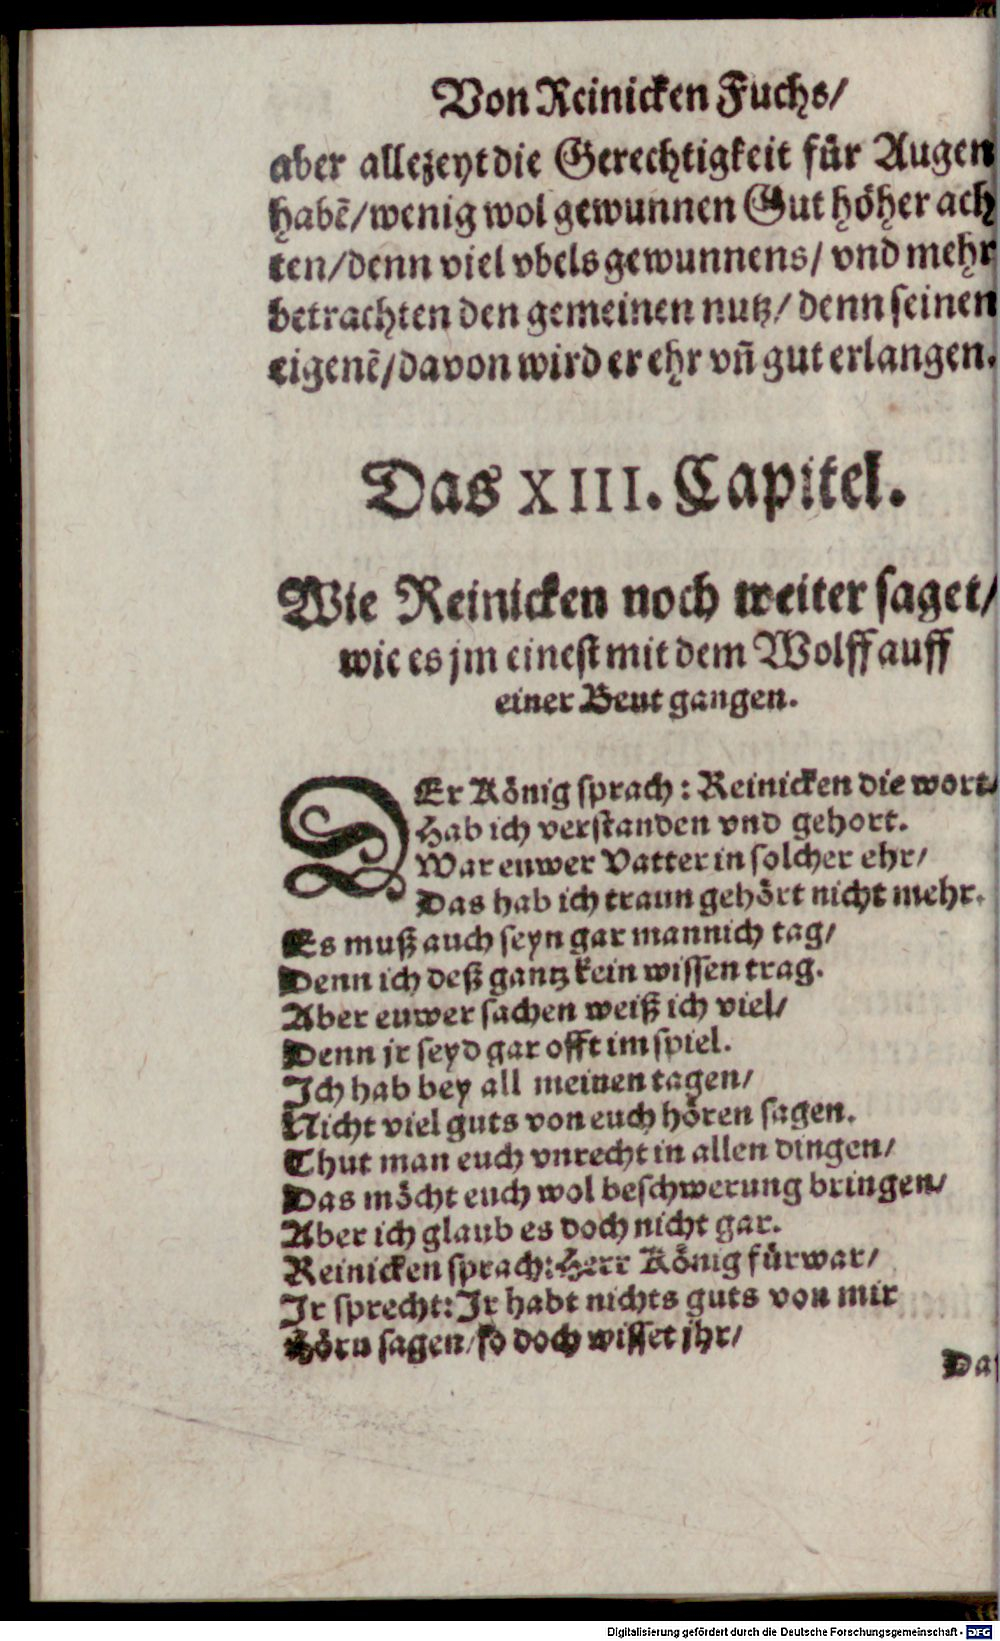 Von Reinicken Fuchs/
aber allezeyt die Gerechtigkeit für Augen
habẽ/wenig wol gewunnen Gut höher ach
ten/denn viel vbels gewunnens/ vnd mehr
betrachten den gemeinen nutz/ denn seinen
eigenẽ/davon wird er ehr vñ gut erlangen.
Das XIII. Capitel.
Wie Reinicken noch weiter saget/
wie es jm einest mit dem Wolff auff
einer Beut gangen.
DEr König sprach: Reinicken die wort/
Hab ich verstanden vnd gehort.
War euwer Vatter in solcher ehr/
Das hab ich traun gehört nicht mehr.
Es muß auch seyn gar mannich tag/
Denn ich deß gantz kein wissen trag.
Aber euwer sachen weiß ich viel/
Denn jr seyd gar offt im spiel.
Ich hab bey all meinen tagen/
Nicht viel guts von euch hören sagen.
Thut man euch vnrecht in allen dingen/
Das möcht euch wol beschwerung bringen/
Aber ich glaub es doch nicht gar.
Reinicken sprach: Herr König fürwar/
Ir sprecht: Ir habt nichts guts von mir
Hörn sagen/so doch wisset jhr/
Das
Digitalisierung gefördert durch die Deutsche Forschungsgemeinschaft - DFG